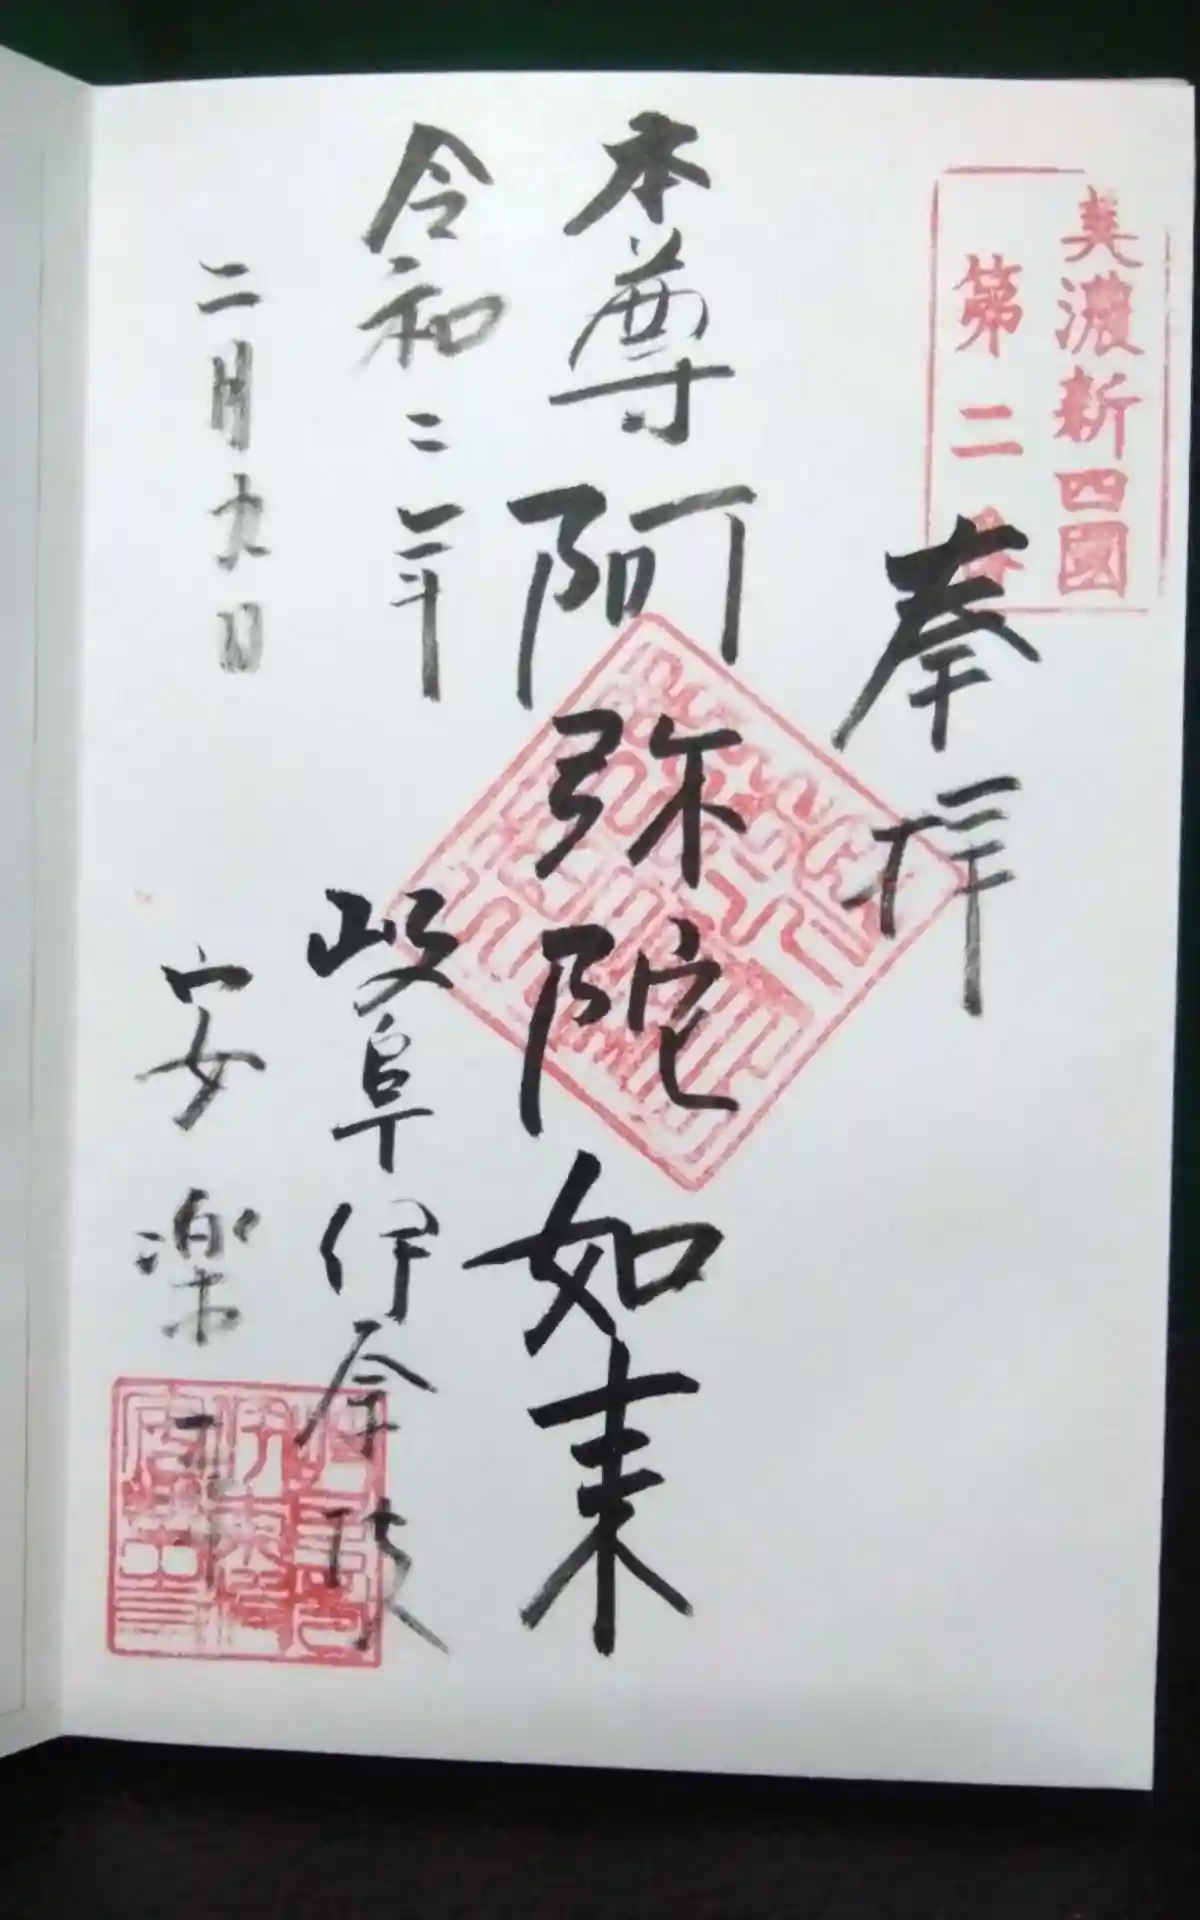 美濃新四國
第二番
奉拝
本尊阿弥陀如来
令和二年
二月九日
岐阜伊奈波
安楽寺